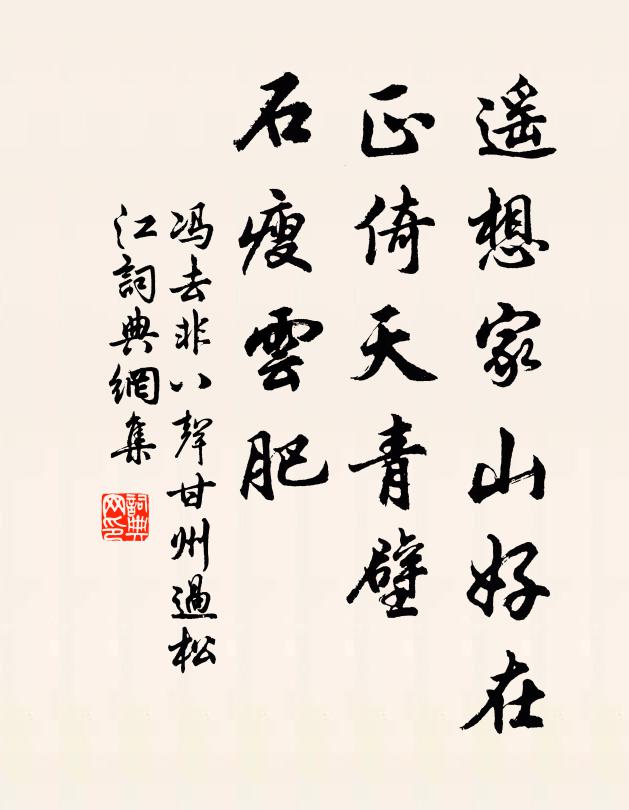 遥想家山好在
正倚天青壁
石瘦雲肥
冯去非八聲甘州過松
江詞典網集
詞典网印